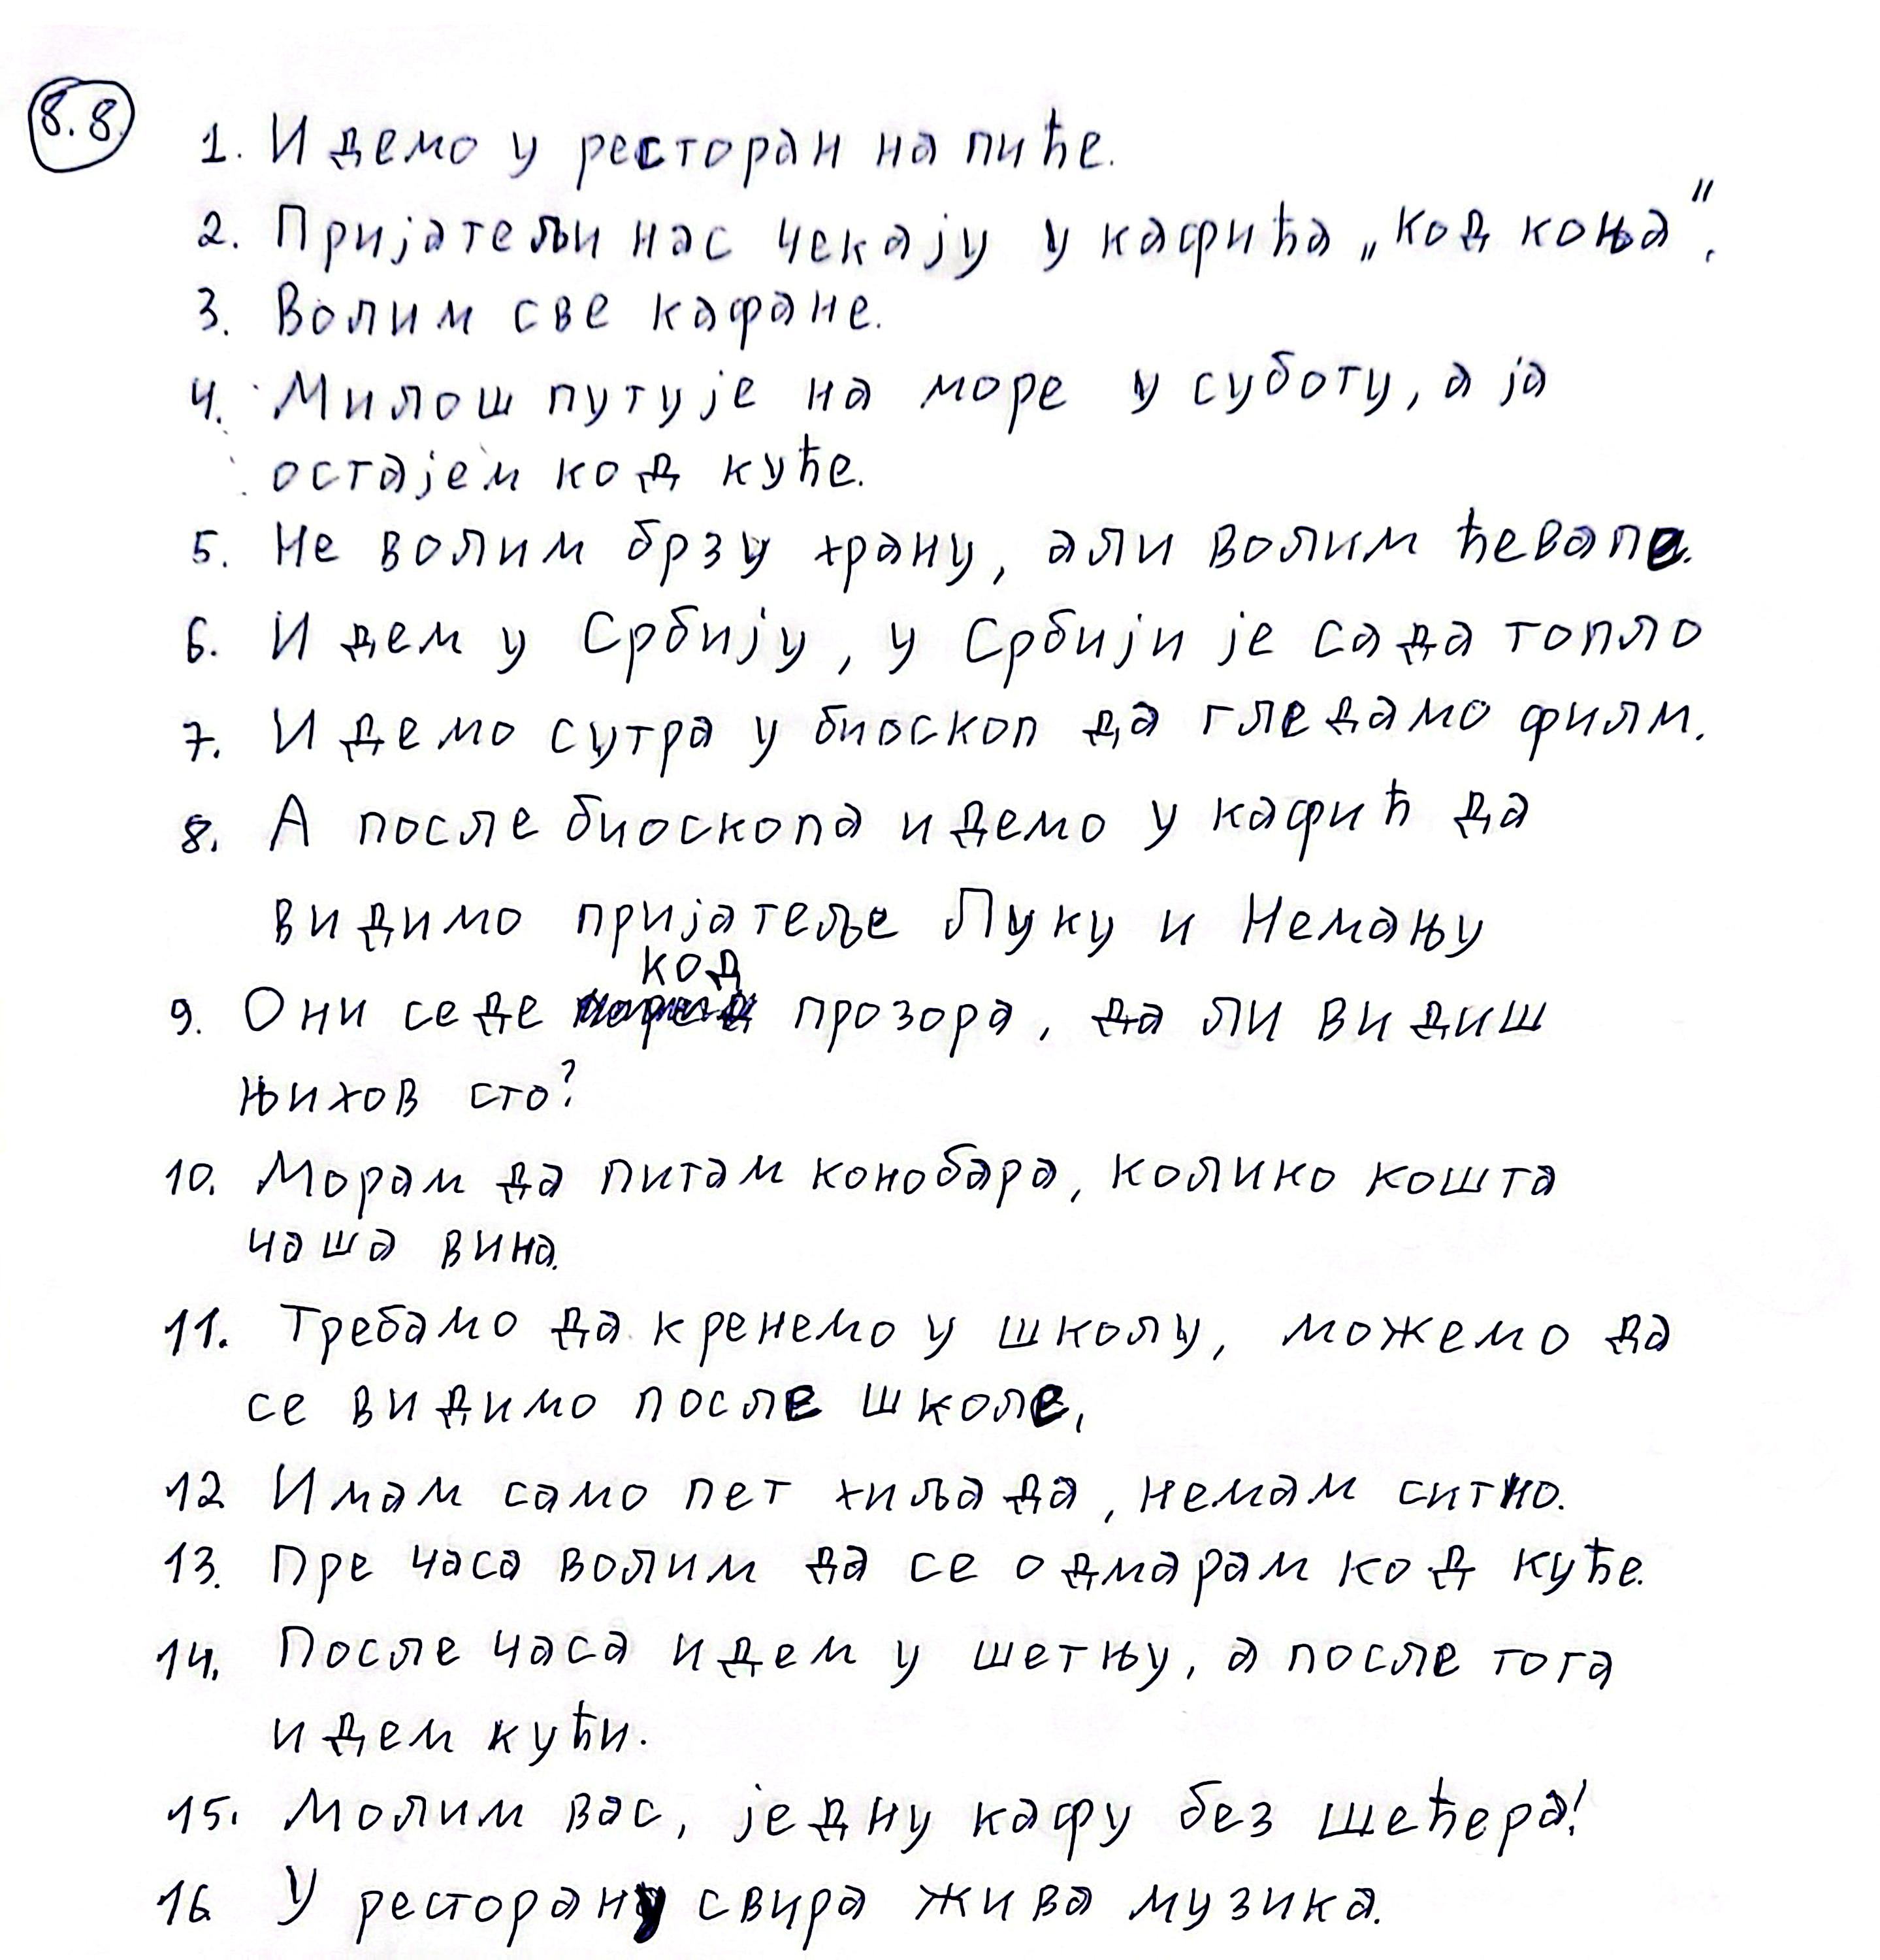 8.8.
1. Идемо у ресторан на пиће.
2. Пријатељи нас чекају у кафића „код коња“.
3. Волим све кафане.
4. Милош путује на море у суботу, а ја
остајем код куће.
5. Не волим брзу храну, али волим ћевапе.
6. Идем у Србију, у Србији је сада топло
7. Идемо сутра у биоскоп да гледамо филм.
8. А после биоскопа идемо у кафић да
видимо пријатеље Луку и Немању
код
9. Они седе прозора, да ли видиш
њихов сто?
10. Морам да питам конобара, колико кошта
чаша вина.
11. Требамо да кренемо у школу, можемо да
се видимо после школе.
12 Имам само пет хиљада, немам ситно.
13. Пре часа волим да се одмарам код куће.
14. После часа идем у шетњу, а после тога
идем кући.
15. Молим вас, једну кафу без шећера!
16. У ресторану свира жива музика.